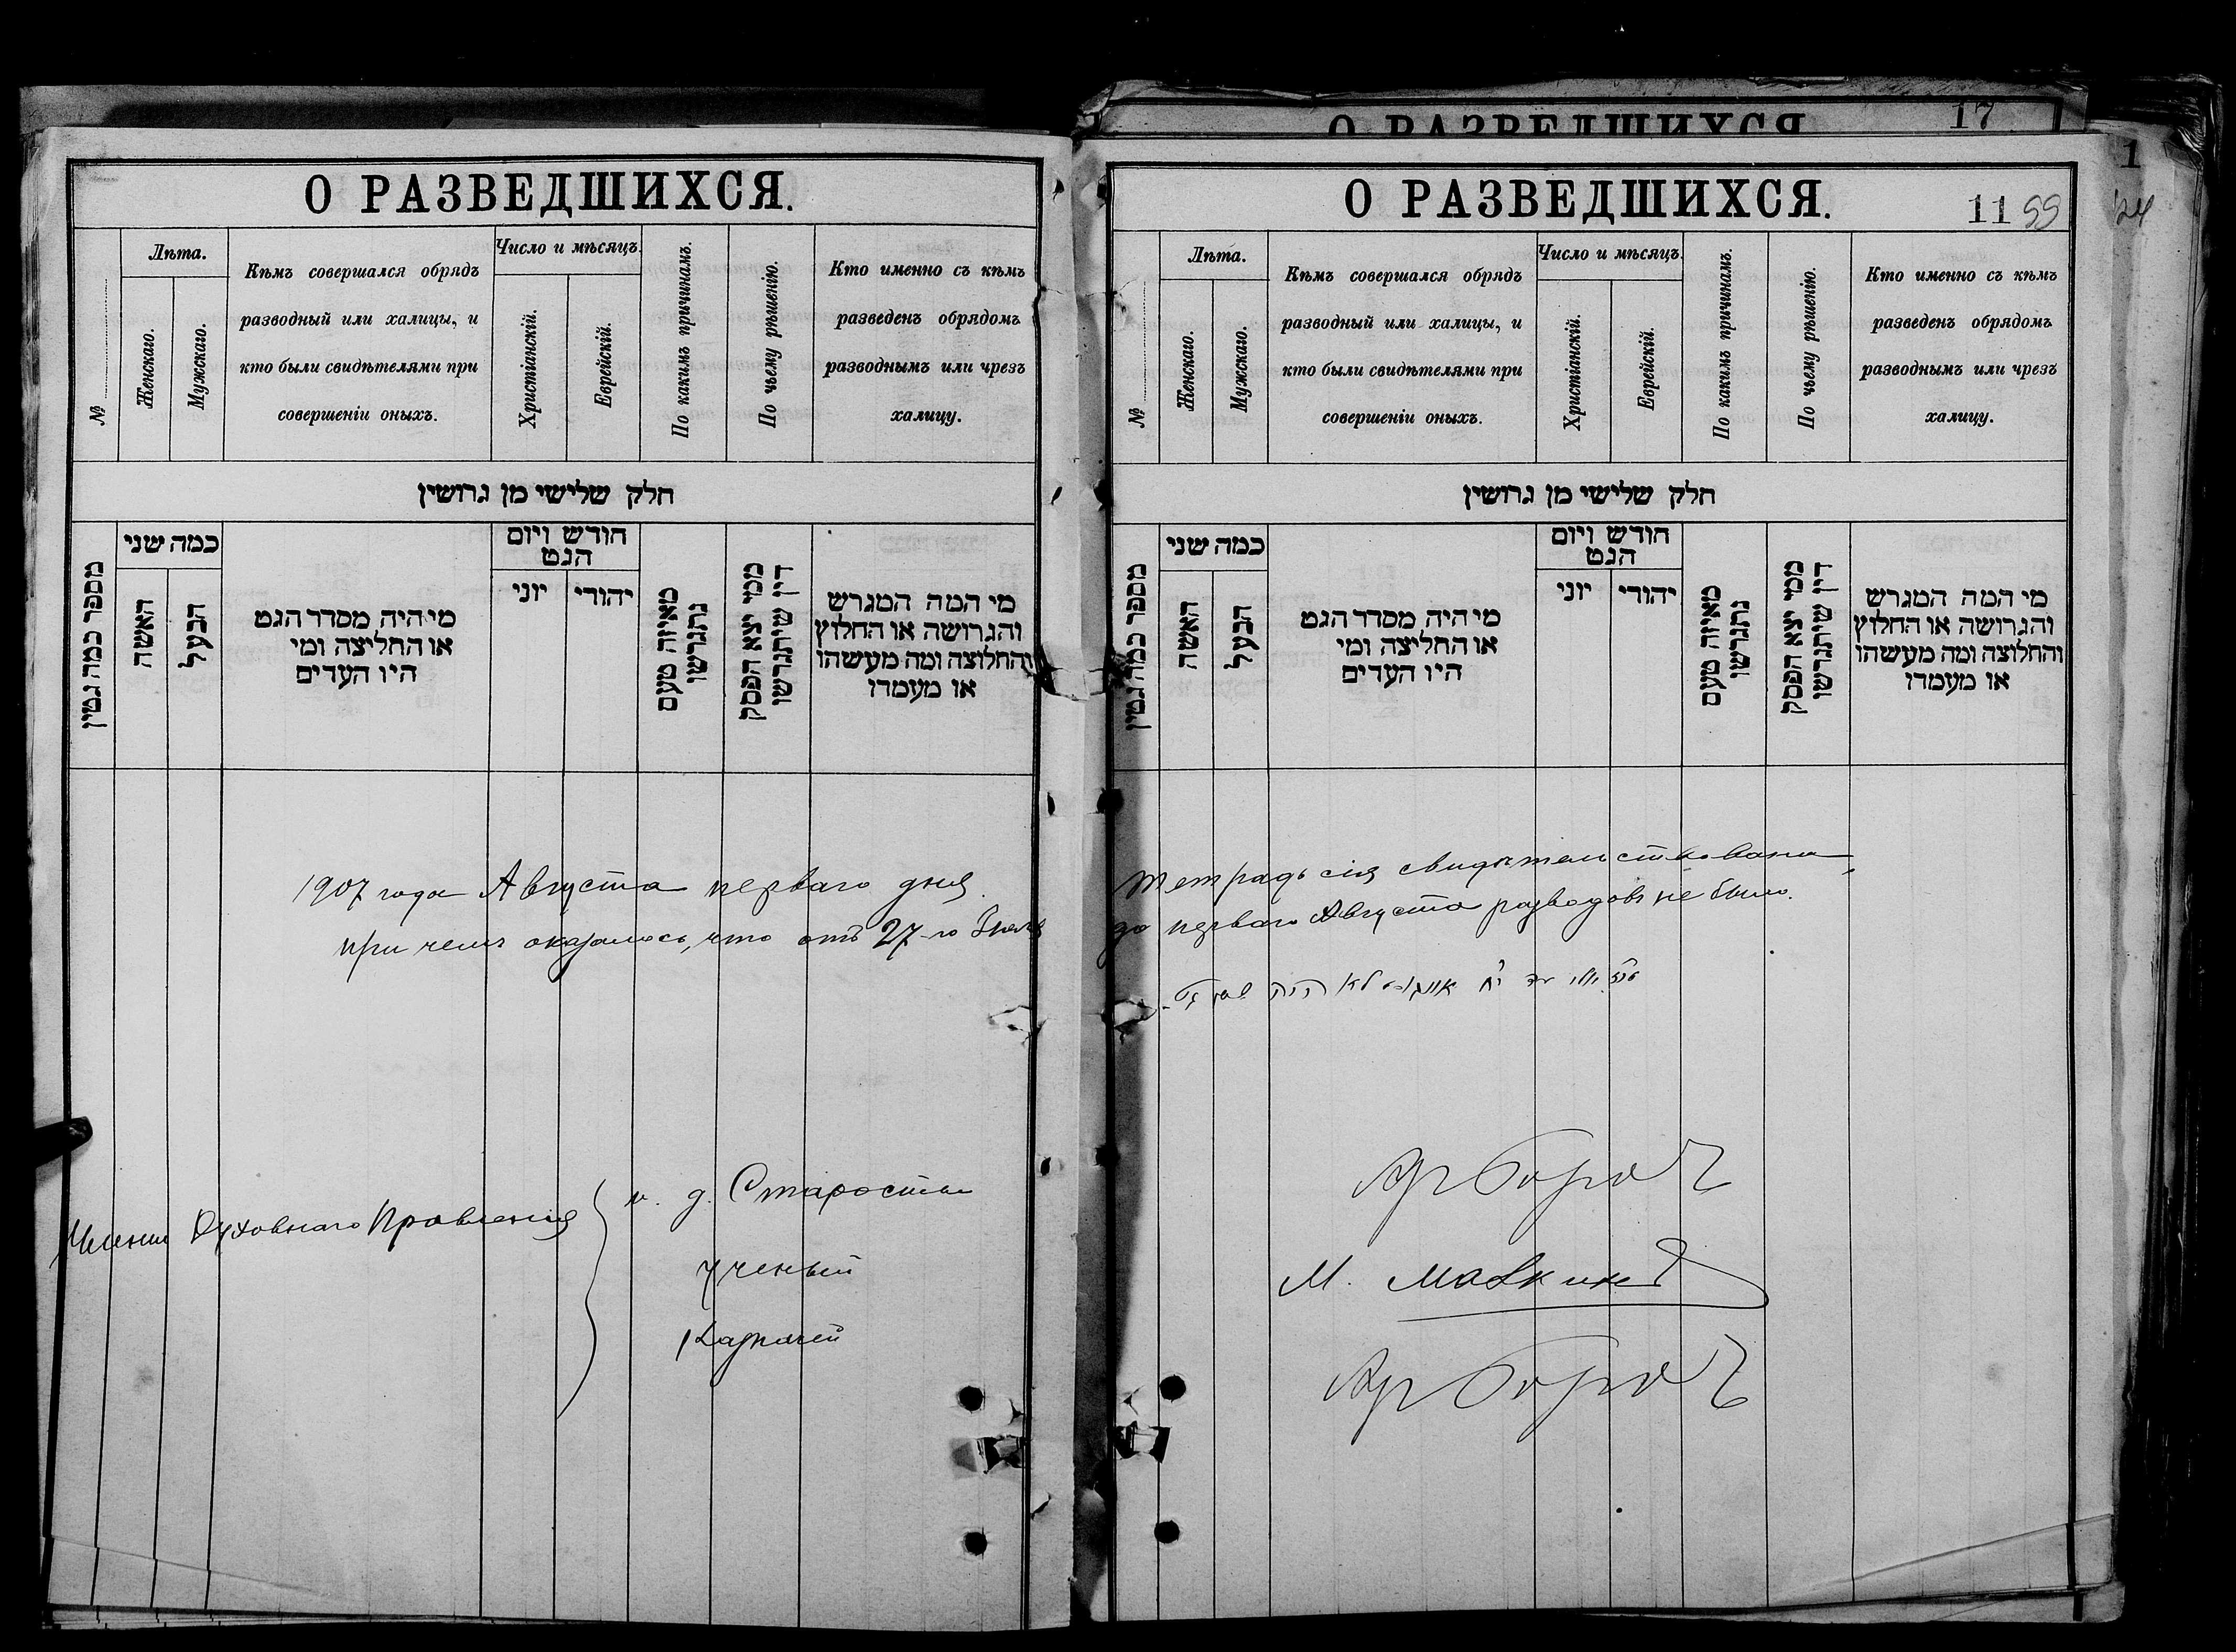 О РАЗВЕДШИХСЯ.
№
Лѣта.
Женскаго.
Мужскаго.
Кѣмъ совершался обрядъ
разводный или халицы, и
кто были свидѣтелями при
совершеніи оныхъ.
Число и мѣсяцъ.
Христіанскій.
Еврейскій.
По какимъ причинамъ.
По чьему рѣшенію.
Кто именно съ кѣмъ
разведенъ обрядомъ
разводнымъ или чрезъ
халицу.
חלק שלישי מן גרושין
מספר כמה גטין
כמה שני
האשה
הבעל
מי היה מסדר הגט
או החליצה ומי
היו העדים
חודש ויום
הגט
יוני
יהודי
מאיזה טעם
נתגרשו
ממי יצא הפסק
דין שיתגרשו
מי המה המגרש
והגרושה או החלוץ
והחלוצה ומה מעשהו
או מעמדו
1907 года Августа перваго дня
при чемъ оказалось, что отъ 27-го Іюля
Члены Духовнаго Правленія
и. д. Старосты
Ученый
Казначей
17
О РАЗВЕДШИХСЯ
1
О РАЗВЕДШИХСЯ.
11 55
124
№
Лѣта.
Женскаго.
Мужскаго.
Кѣмъ совершался обрядъ
разводный или халицы, и
кто были свидѣтелями при
совершеніи оныхъ.
Число и мѣсяцъ.
Христіанскій.
Еврейскій.
По какимъ причинамъ.
По чьему рѣшенію.
Кто именно съ кѣмъ
разведенъ обрядомъ
разводнымъ или чрезъ
халицу.
חלק שלישי מן גרושין
מספר כמה גטין
כמה שני
האשה
הבעל
מי היה מסדר הגט
או החליצה ומי
היו העדים
חודש ויום
הגט
יוני
יהודי
מאיזה טעם
נתגרשו
ממי יצא הפסק
דין שיתגרשו
מי המה המגרש
והגרושה או החלוץ
והחלוצה ומה מעשהו
או מעמדו
тетрадь сія свидѣтельствована,
до перваго Августа разводовъ не было.
לא היה
М. Малкинъ